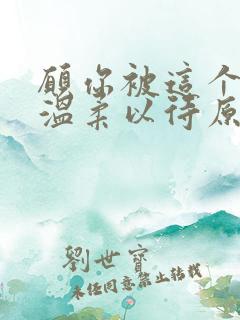 願你被這个
温柔以待原
劉世寶
未经同意禁止转载